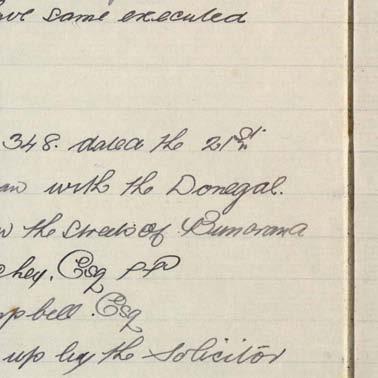 ave same executed
348. dated the 21st
an with the Donegal.
the Streets of Bunorana
chey. Esq PP
pbell. Esq
up by the Solicitor